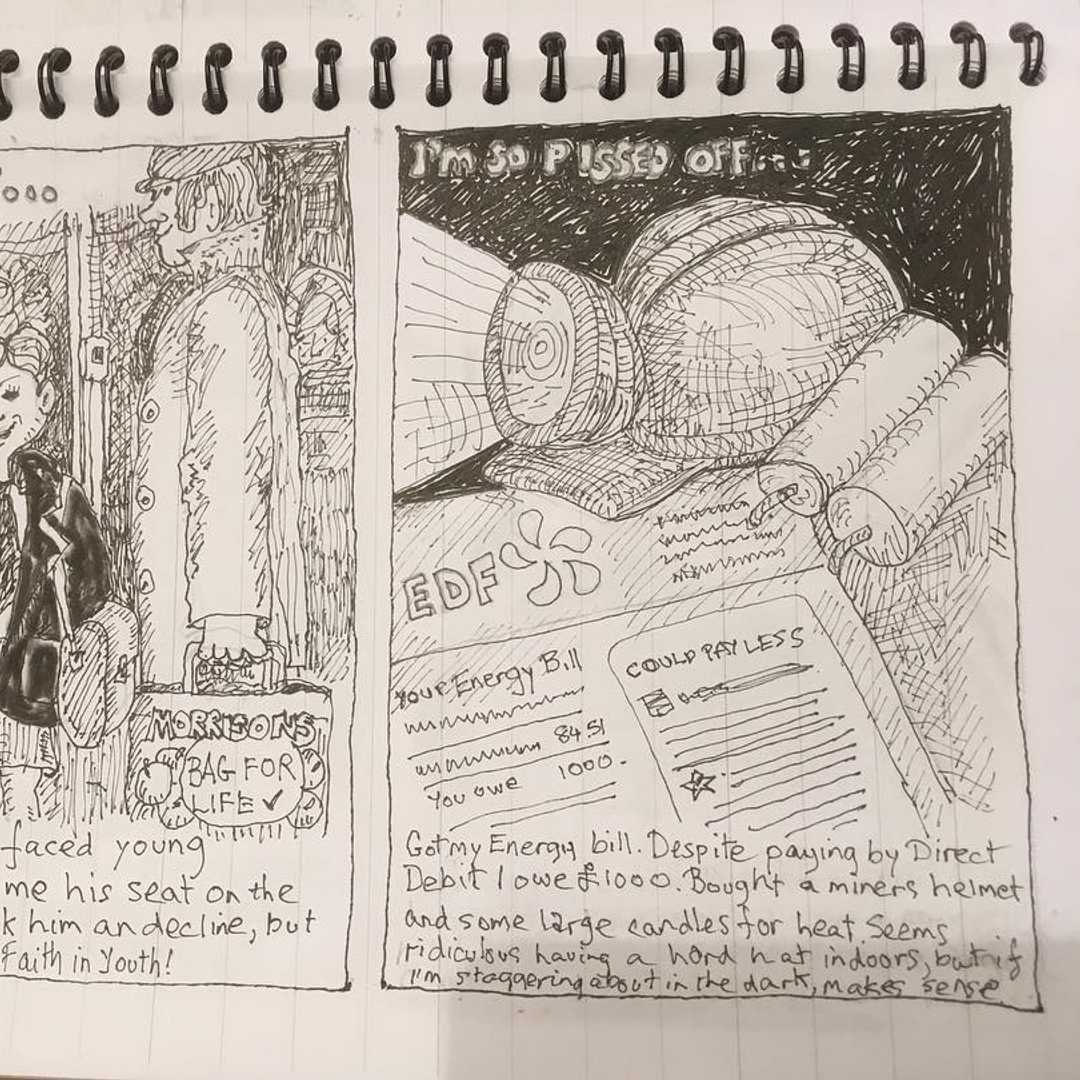 MORRISONS
BAG FOR
LIFE ✓
faced young
me his seat on the
k him an decline, but
Faith in Youth!
I'm SO PISSED OFF....
EDF
Your Energy Bill
84.51
You owe 1000.
COULD PAY LESS
Got my Energy bill. Despite paying by Direct
Debit I owe £1000. Bought a miners helmet
and some large candles for heat. Seems
ridiculous having a hard hat indoors, but if
I'm staggering about in the dark, makes sense